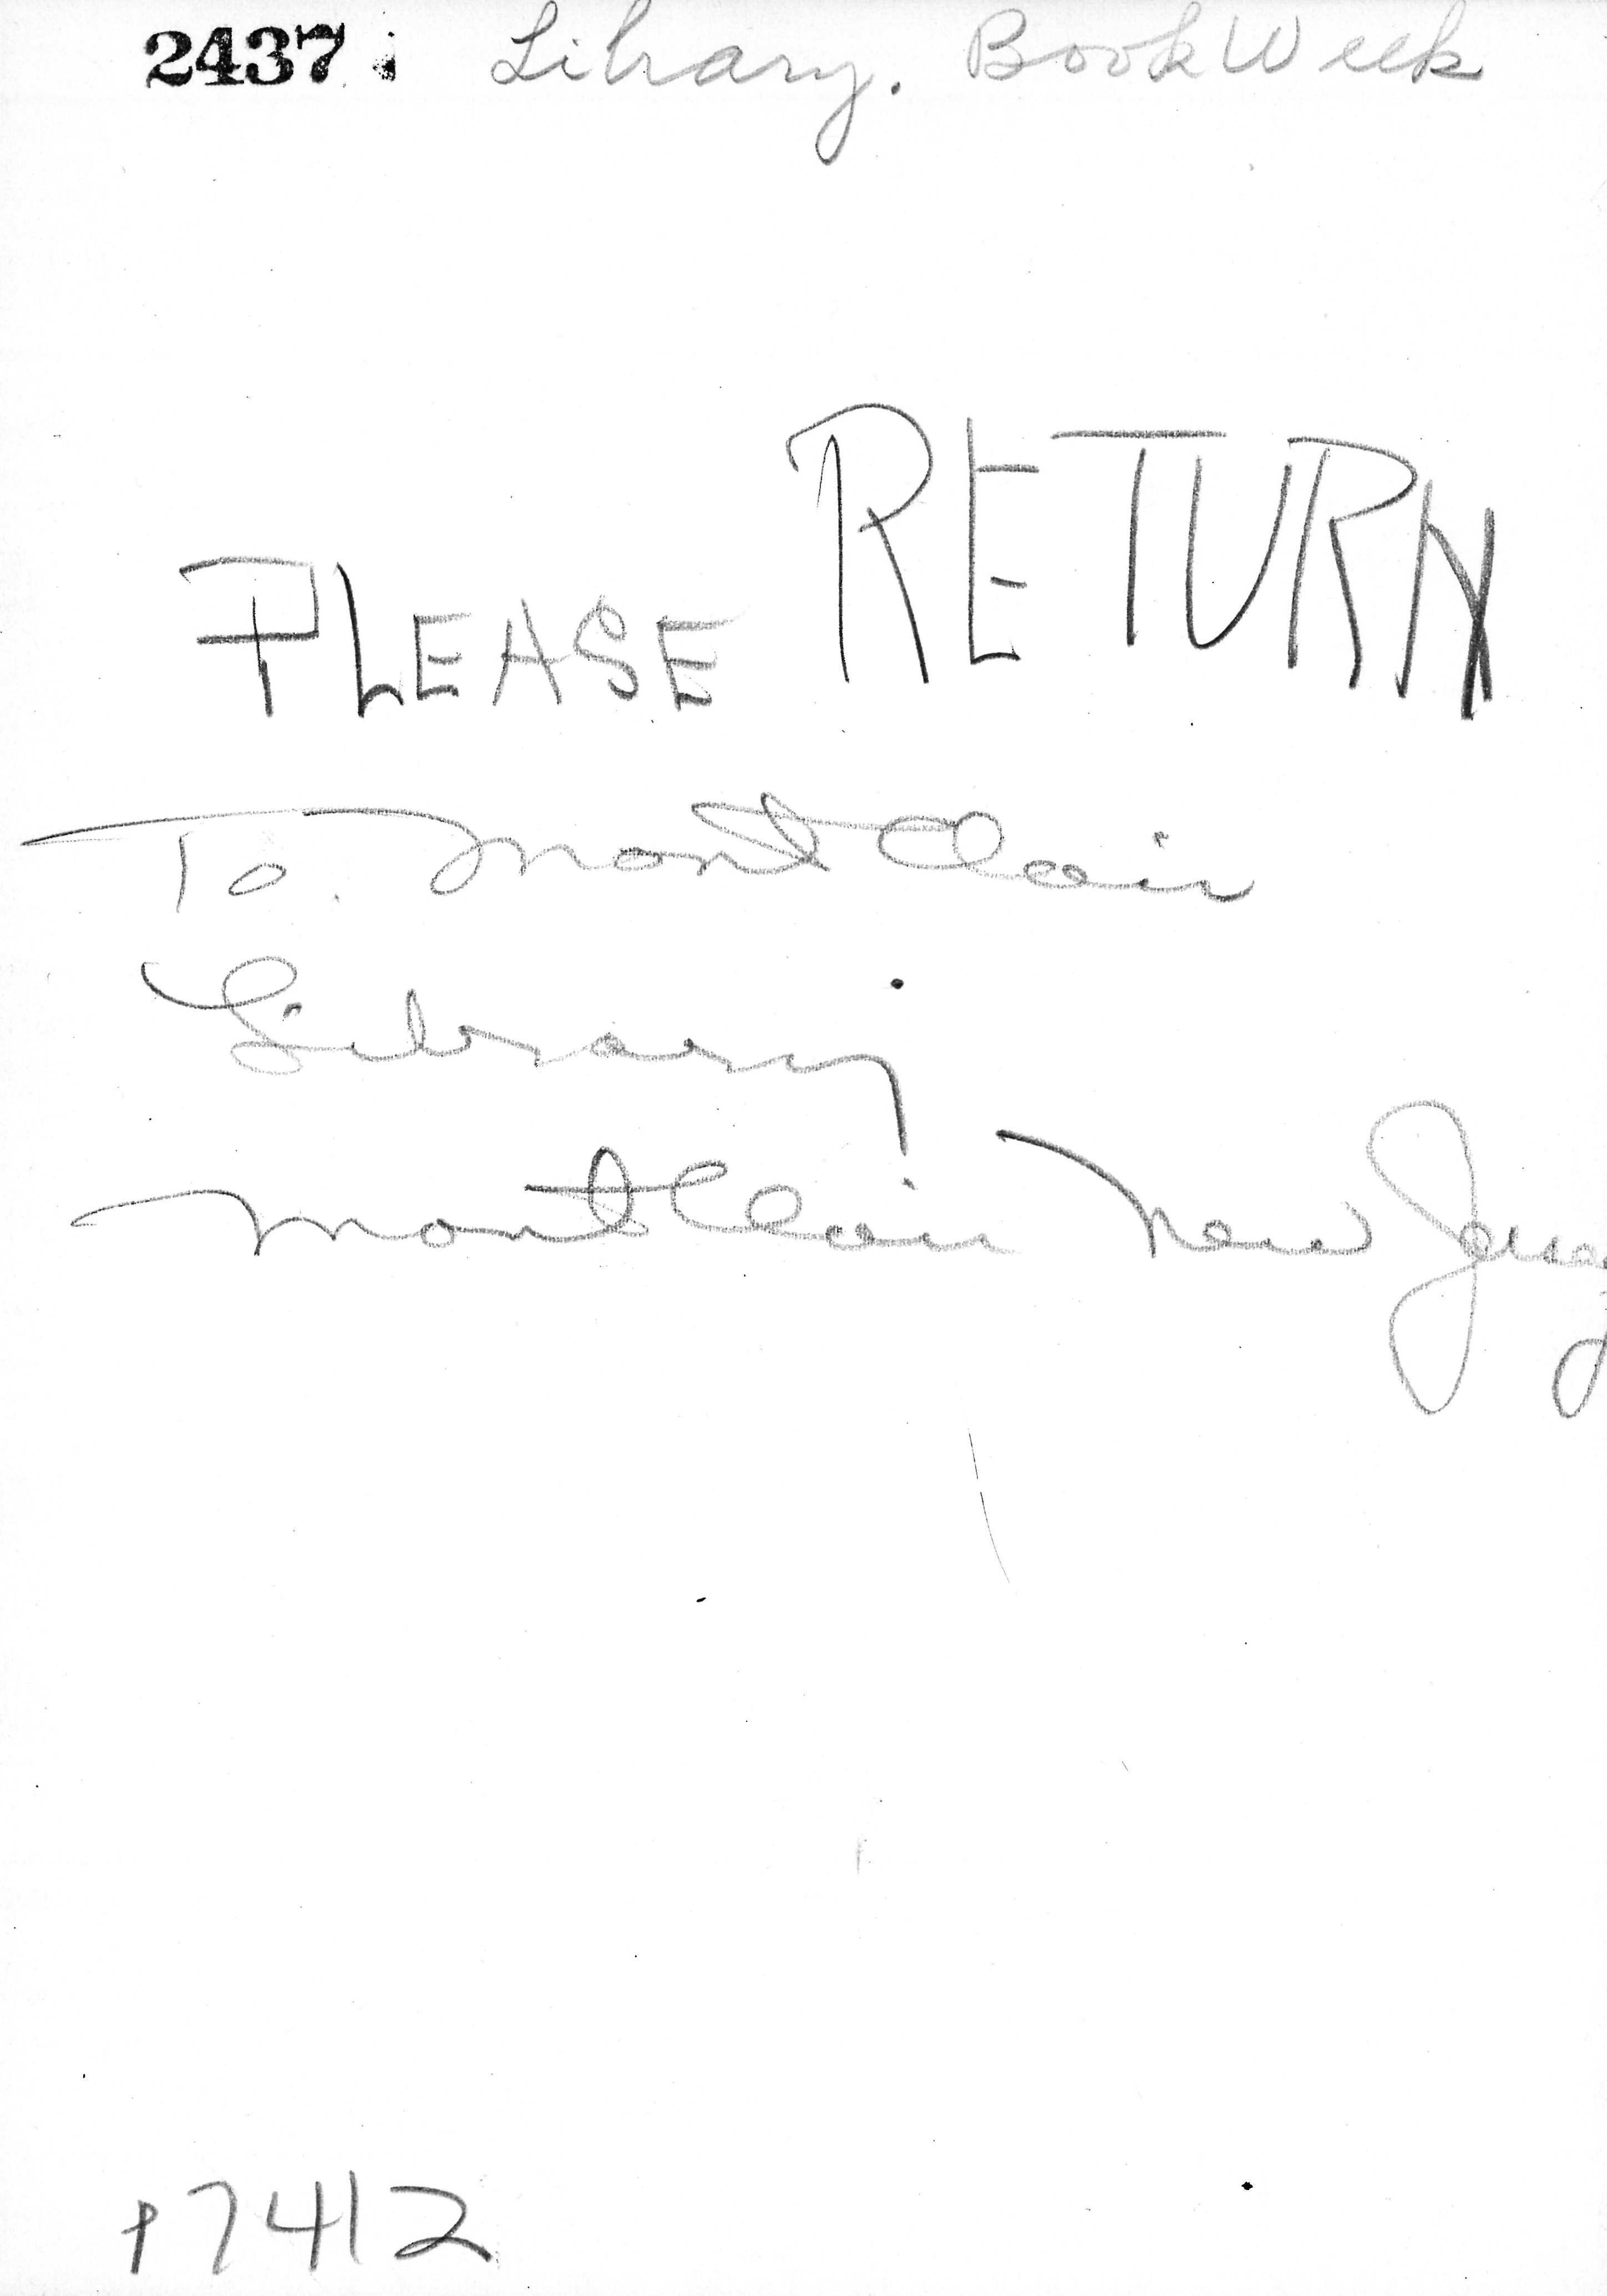 2437. Library. Book Week
PLEASE RETURN
To. Montclair
Library
Montclair New Jersey
P7412